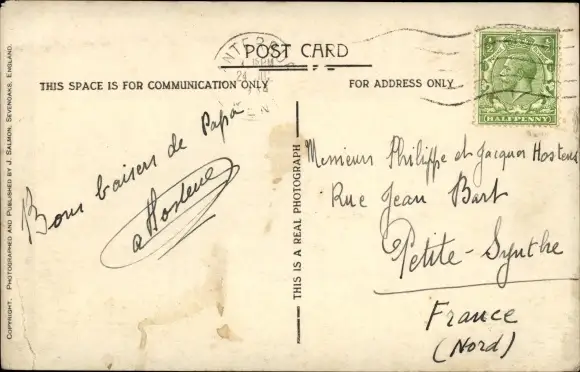 POST CARD
THIS SPACE IS FOR COMMUNICATION ONLY
FOR ADDRESS ONLY
HALFPENNY
Bons baisers de Papa
a Hostene
Messieurs Philippe et Jacques Hostene
Rue Jean Bart
Petite-Synthe
France
(Nord)
THIS IS A REAL PHOTOGRAPH
COPYRIGHT. PHOTOGRAPHED AND PUBLISHED BY J. SALMON, SEVENOAKS, ENGLAND.